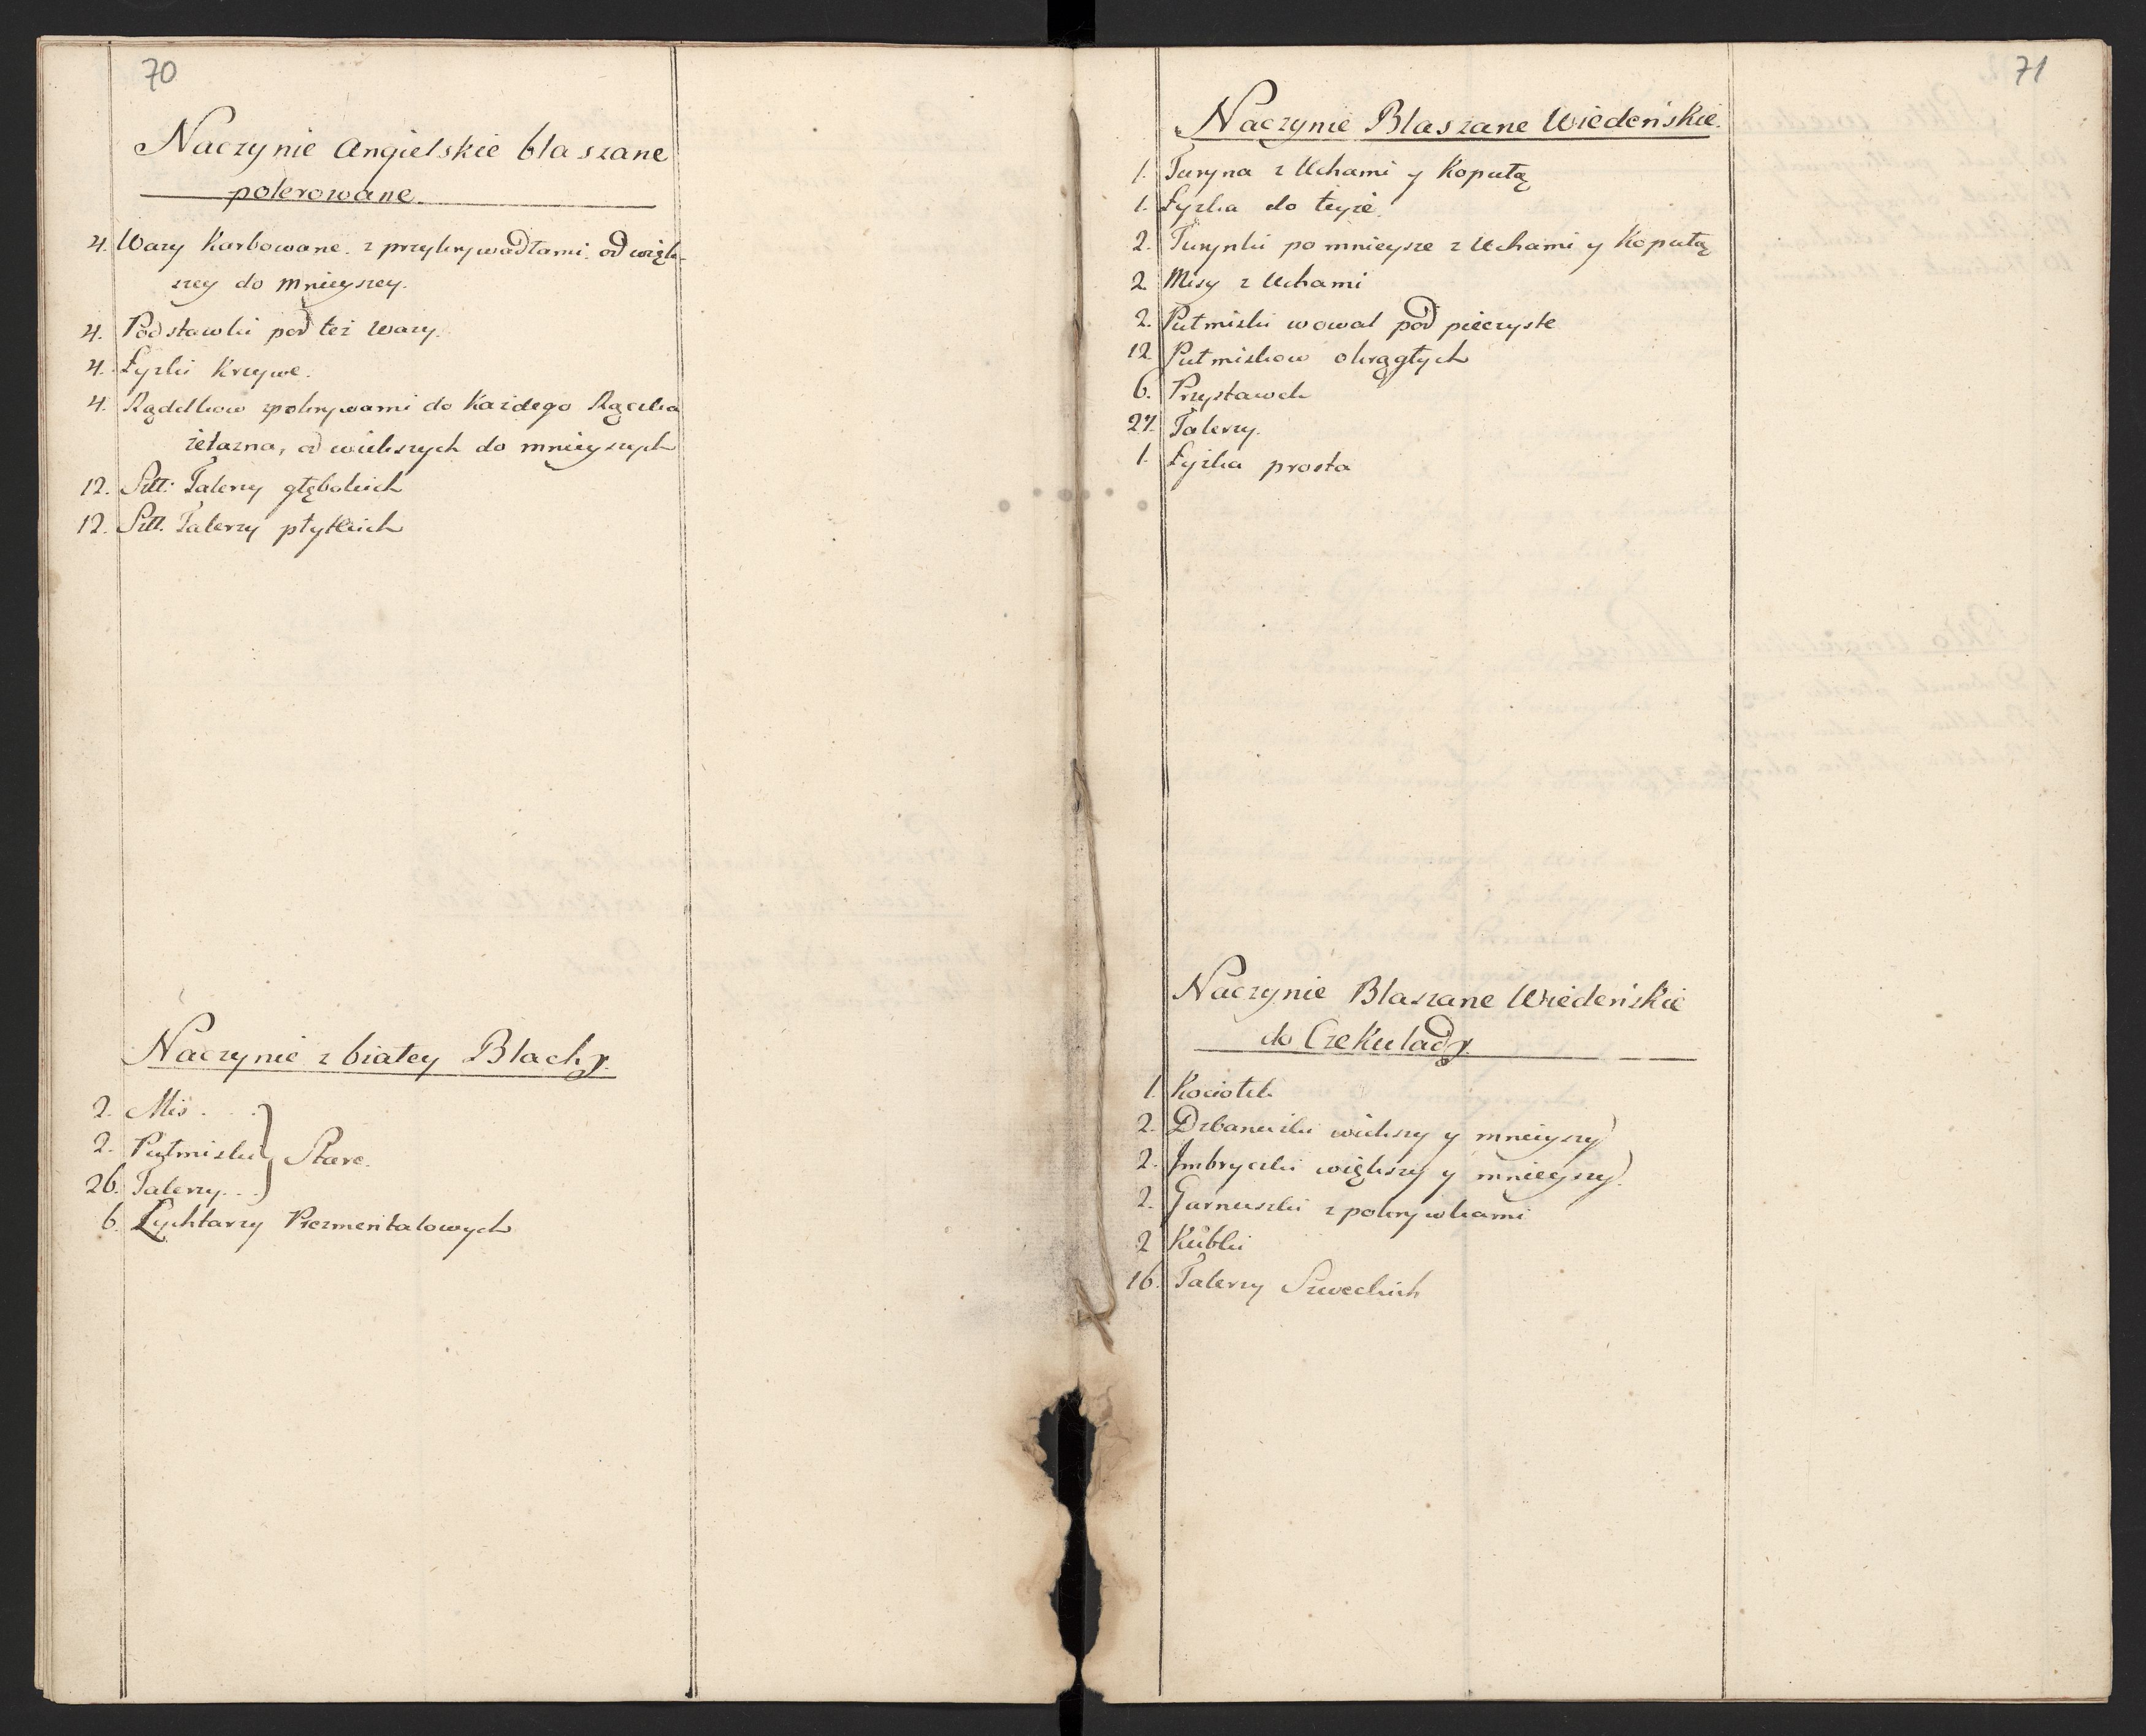 70
Naczynie Angielskie blaszane
polerowane.
4. Wazy Karbowane. z przykrywadłami. od więk-
szey do mnieyszey.
4. Podstawki pod też Wazy.
4. Łyżki Krzywe.
4. Rądelkow zpokrywami do Każdego Rączka
żelazna, od wiekszych do mnieyszych
12. Sztt: Talerzy głębokich
12. Sztt. Talerzy płytkich
Naczynie z białey Blachy.
2. Mis . . .
2. Pułmiski Stare.
26. Talerzy. . .
6. Lychtarzy Piezmentalowych
71
Naczynie Blaszane Wiedeńskie.
1. Turyna z Uchami y Kopułą
1. Łyzka do teyże.
2. Turynki pomnieysze z Uchami y Kopułą
2. Misy z Uchami
2. Pułmiski wowal pod pieczyste
12. Pułmiskow okrągłych
6. Przystawek
27. Talerzy.
1. Łyżka prosta
Naczynie Blaszane Wiedeńskie
do Czekulady.
1. Kociołek
2. Dzbanuszki wiekszy y mnieyszy
2. Imbryczki większy y mnieyszy.
2. Garnuszki z pokrywkami
2 Kubki
16. Talerzy Szweckich